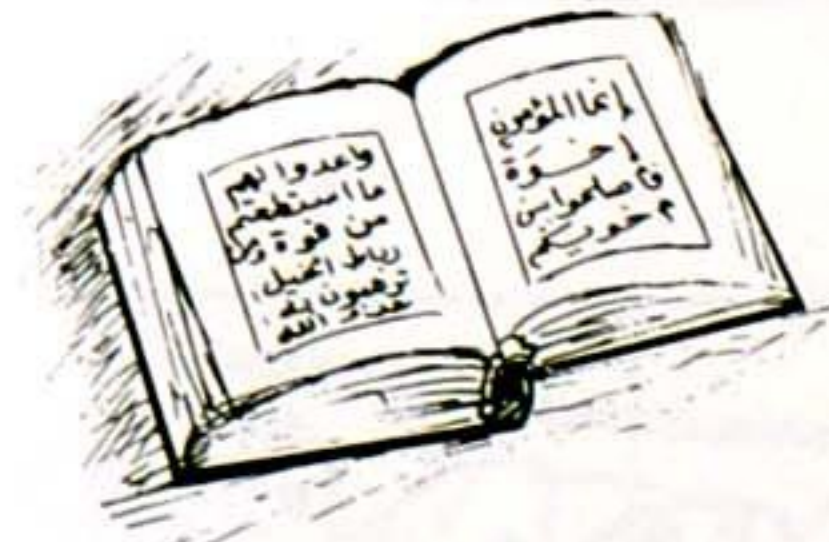 إنما المؤمنون
إخوة
فاصلحوا بين
أخويكم
واعدوا لهم
ما استطعتم
من قوة ومن
رباط الخيل
ترهبون به
عدو الله